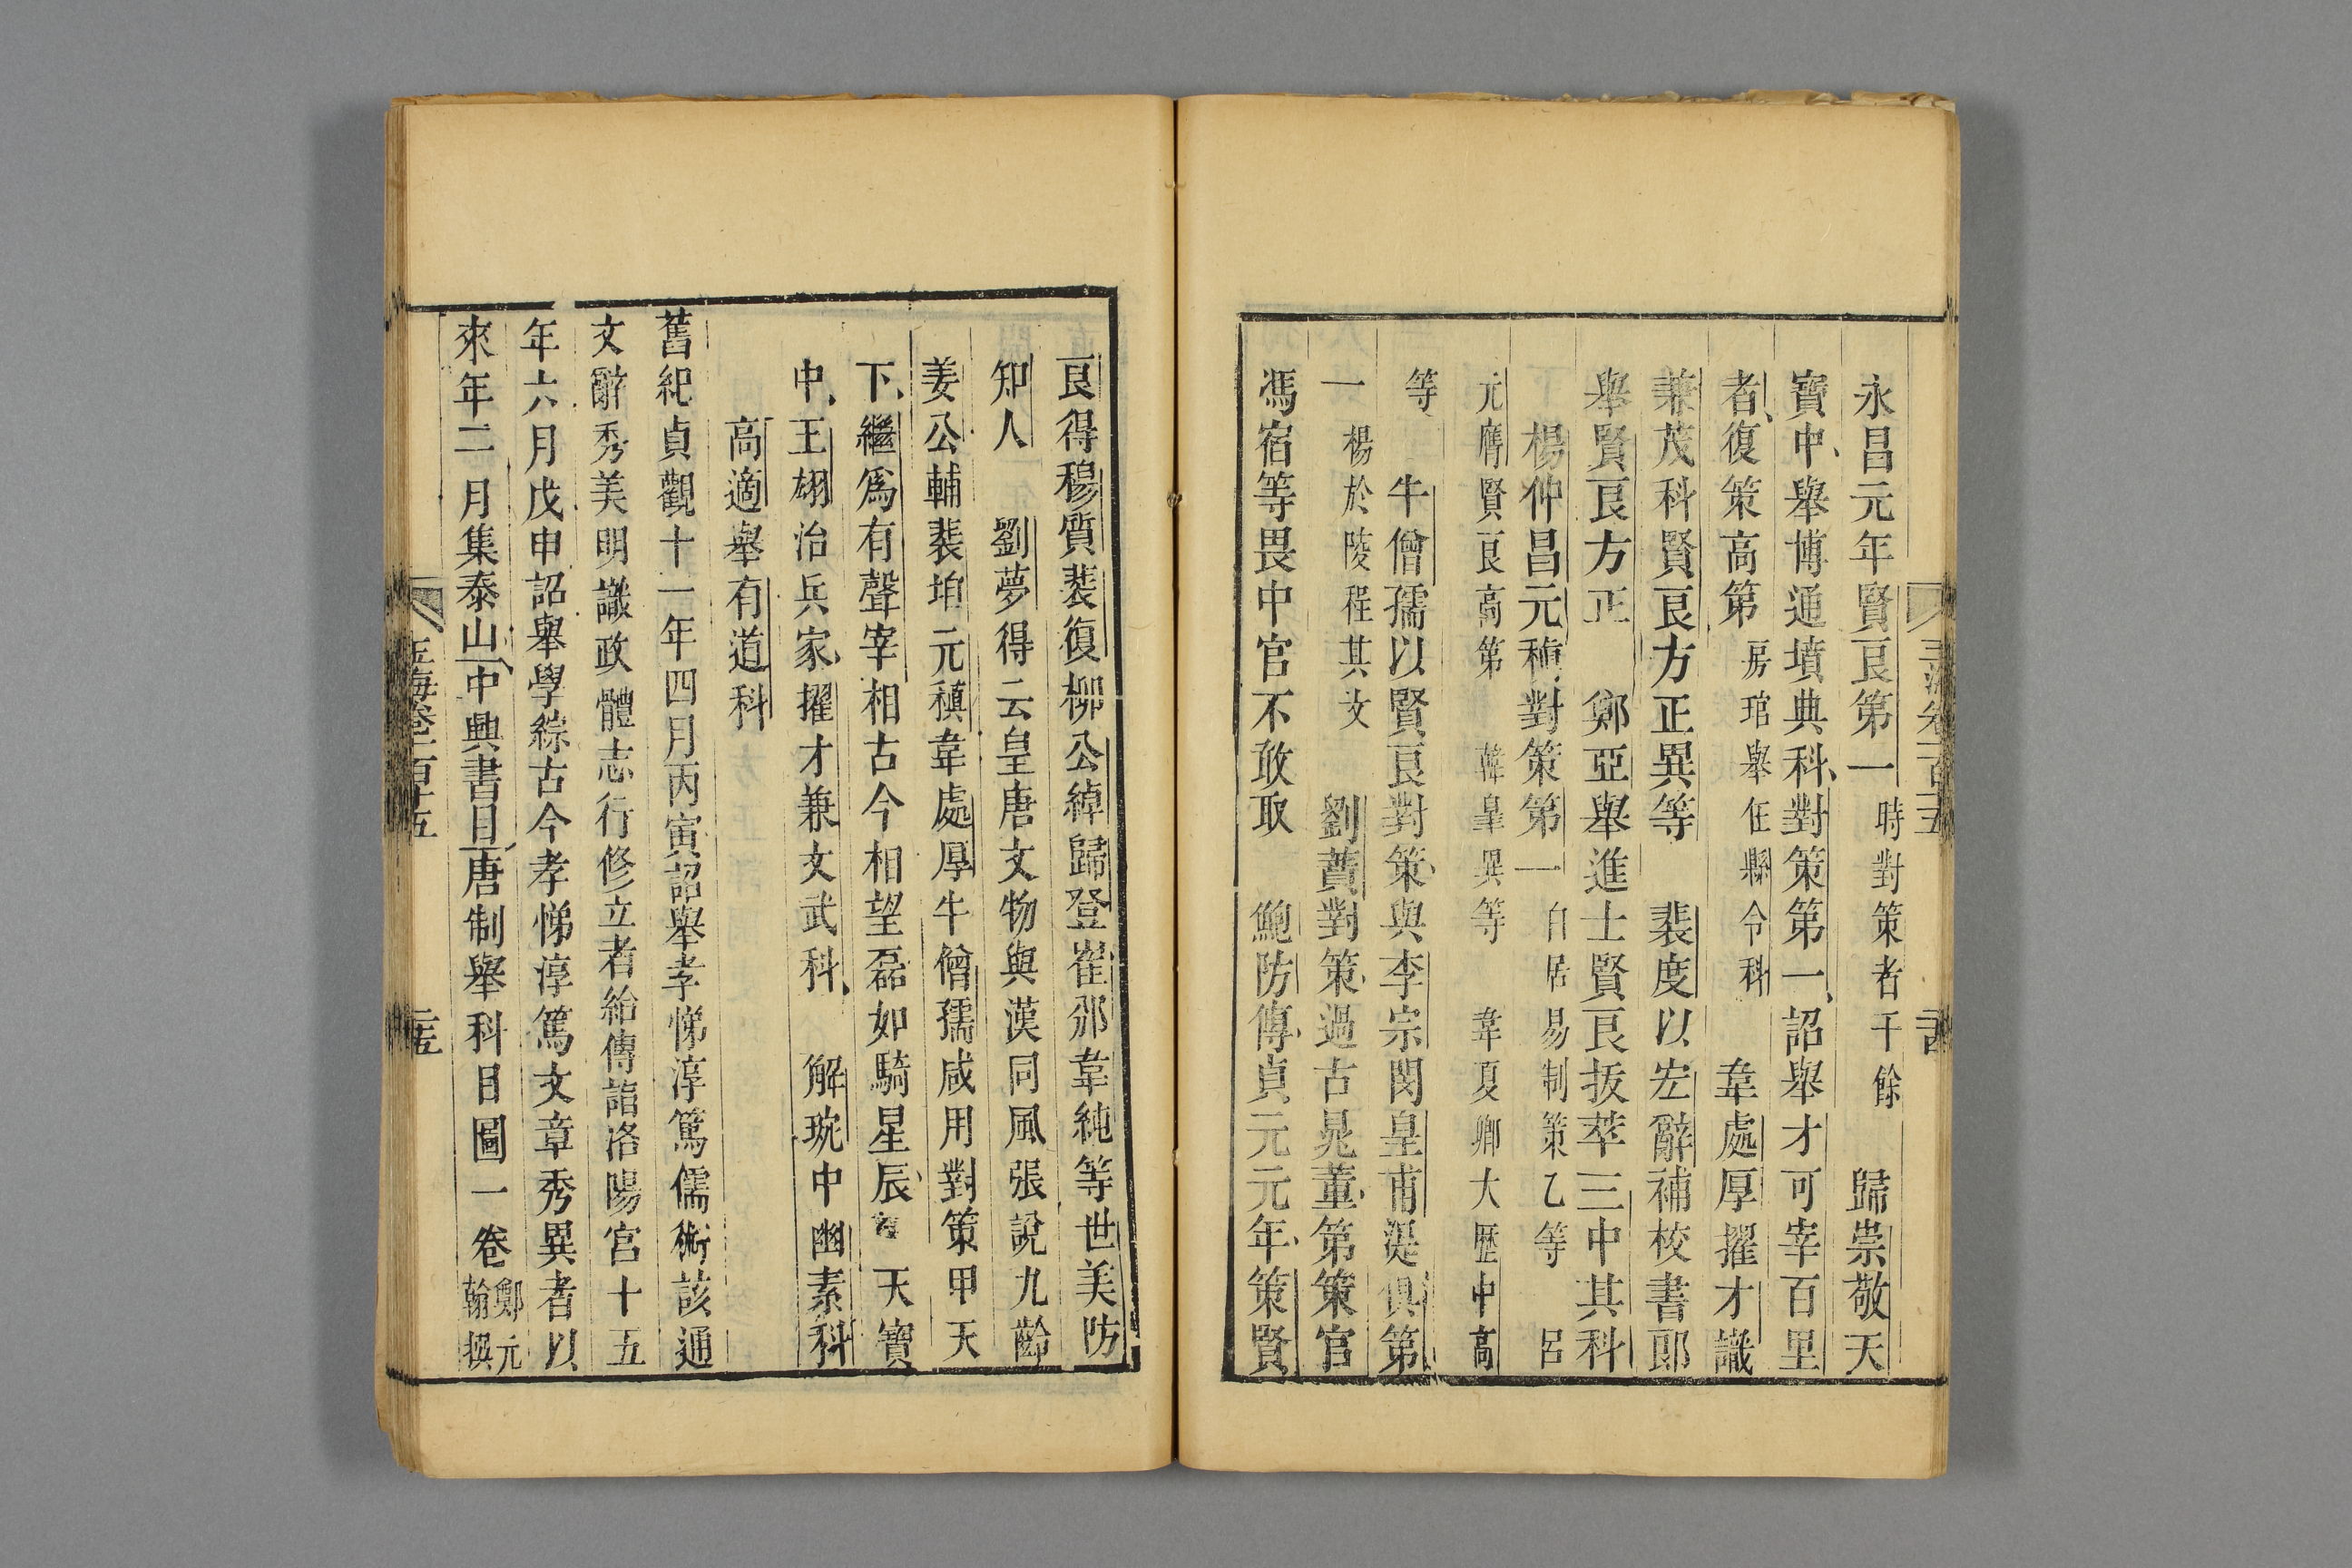 永昌元年賢良第一時對策者千餘　歸崇敬天
寶中舉博通墳典科對策第一詔舉才可宰百里
者復策高第房琯舉任縣令科　韋處厚擢才識
兼茂科賢良方正異等　裴度以宏辭補校書郎
舉賢良方正　鄭亞舉進士賢良拔萃三中其科
楊仲昌元稹對策第一白居易制策乙等　呂
元膺賢良高第　韓臯異等　韋夏卿大歷中高
等　牛僧孺以賢良對策與李宗閔皇甫湜俱第
一楊於陵程其文　劉蕡對策過古晁董第策官
馮宿等畏中官不敢取　鮑防傳貞元元年策賢
玉海卷一百十五
二十四
良得穆質裴復柳公綽歸登崔邠韋純等世美防
知人　劉夢得云皇唐文物與漢同風張說九齡
姜公輔裴垍元稹韋處厚牛僧孺咸用對策甲天
下繼爲有聲宰相古今相望磊如騎星辰　天寶
中王翃治兵家擢才兼文武科　解琬中幽素科
高適舉有道科
舊紀貞觀十一年四月丙寅詔舉孝悌淳篤儒術該通
文辭秀美明識政體志行修立者給傳詣洛陽宮十五
年六月戊申詔舉學綜古今孝悌淳篤文章秀異者以
來年二月集泰山中興書目唐制舉科目圖一卷鄭元
翰撰
玉海卷一百十五
二十五